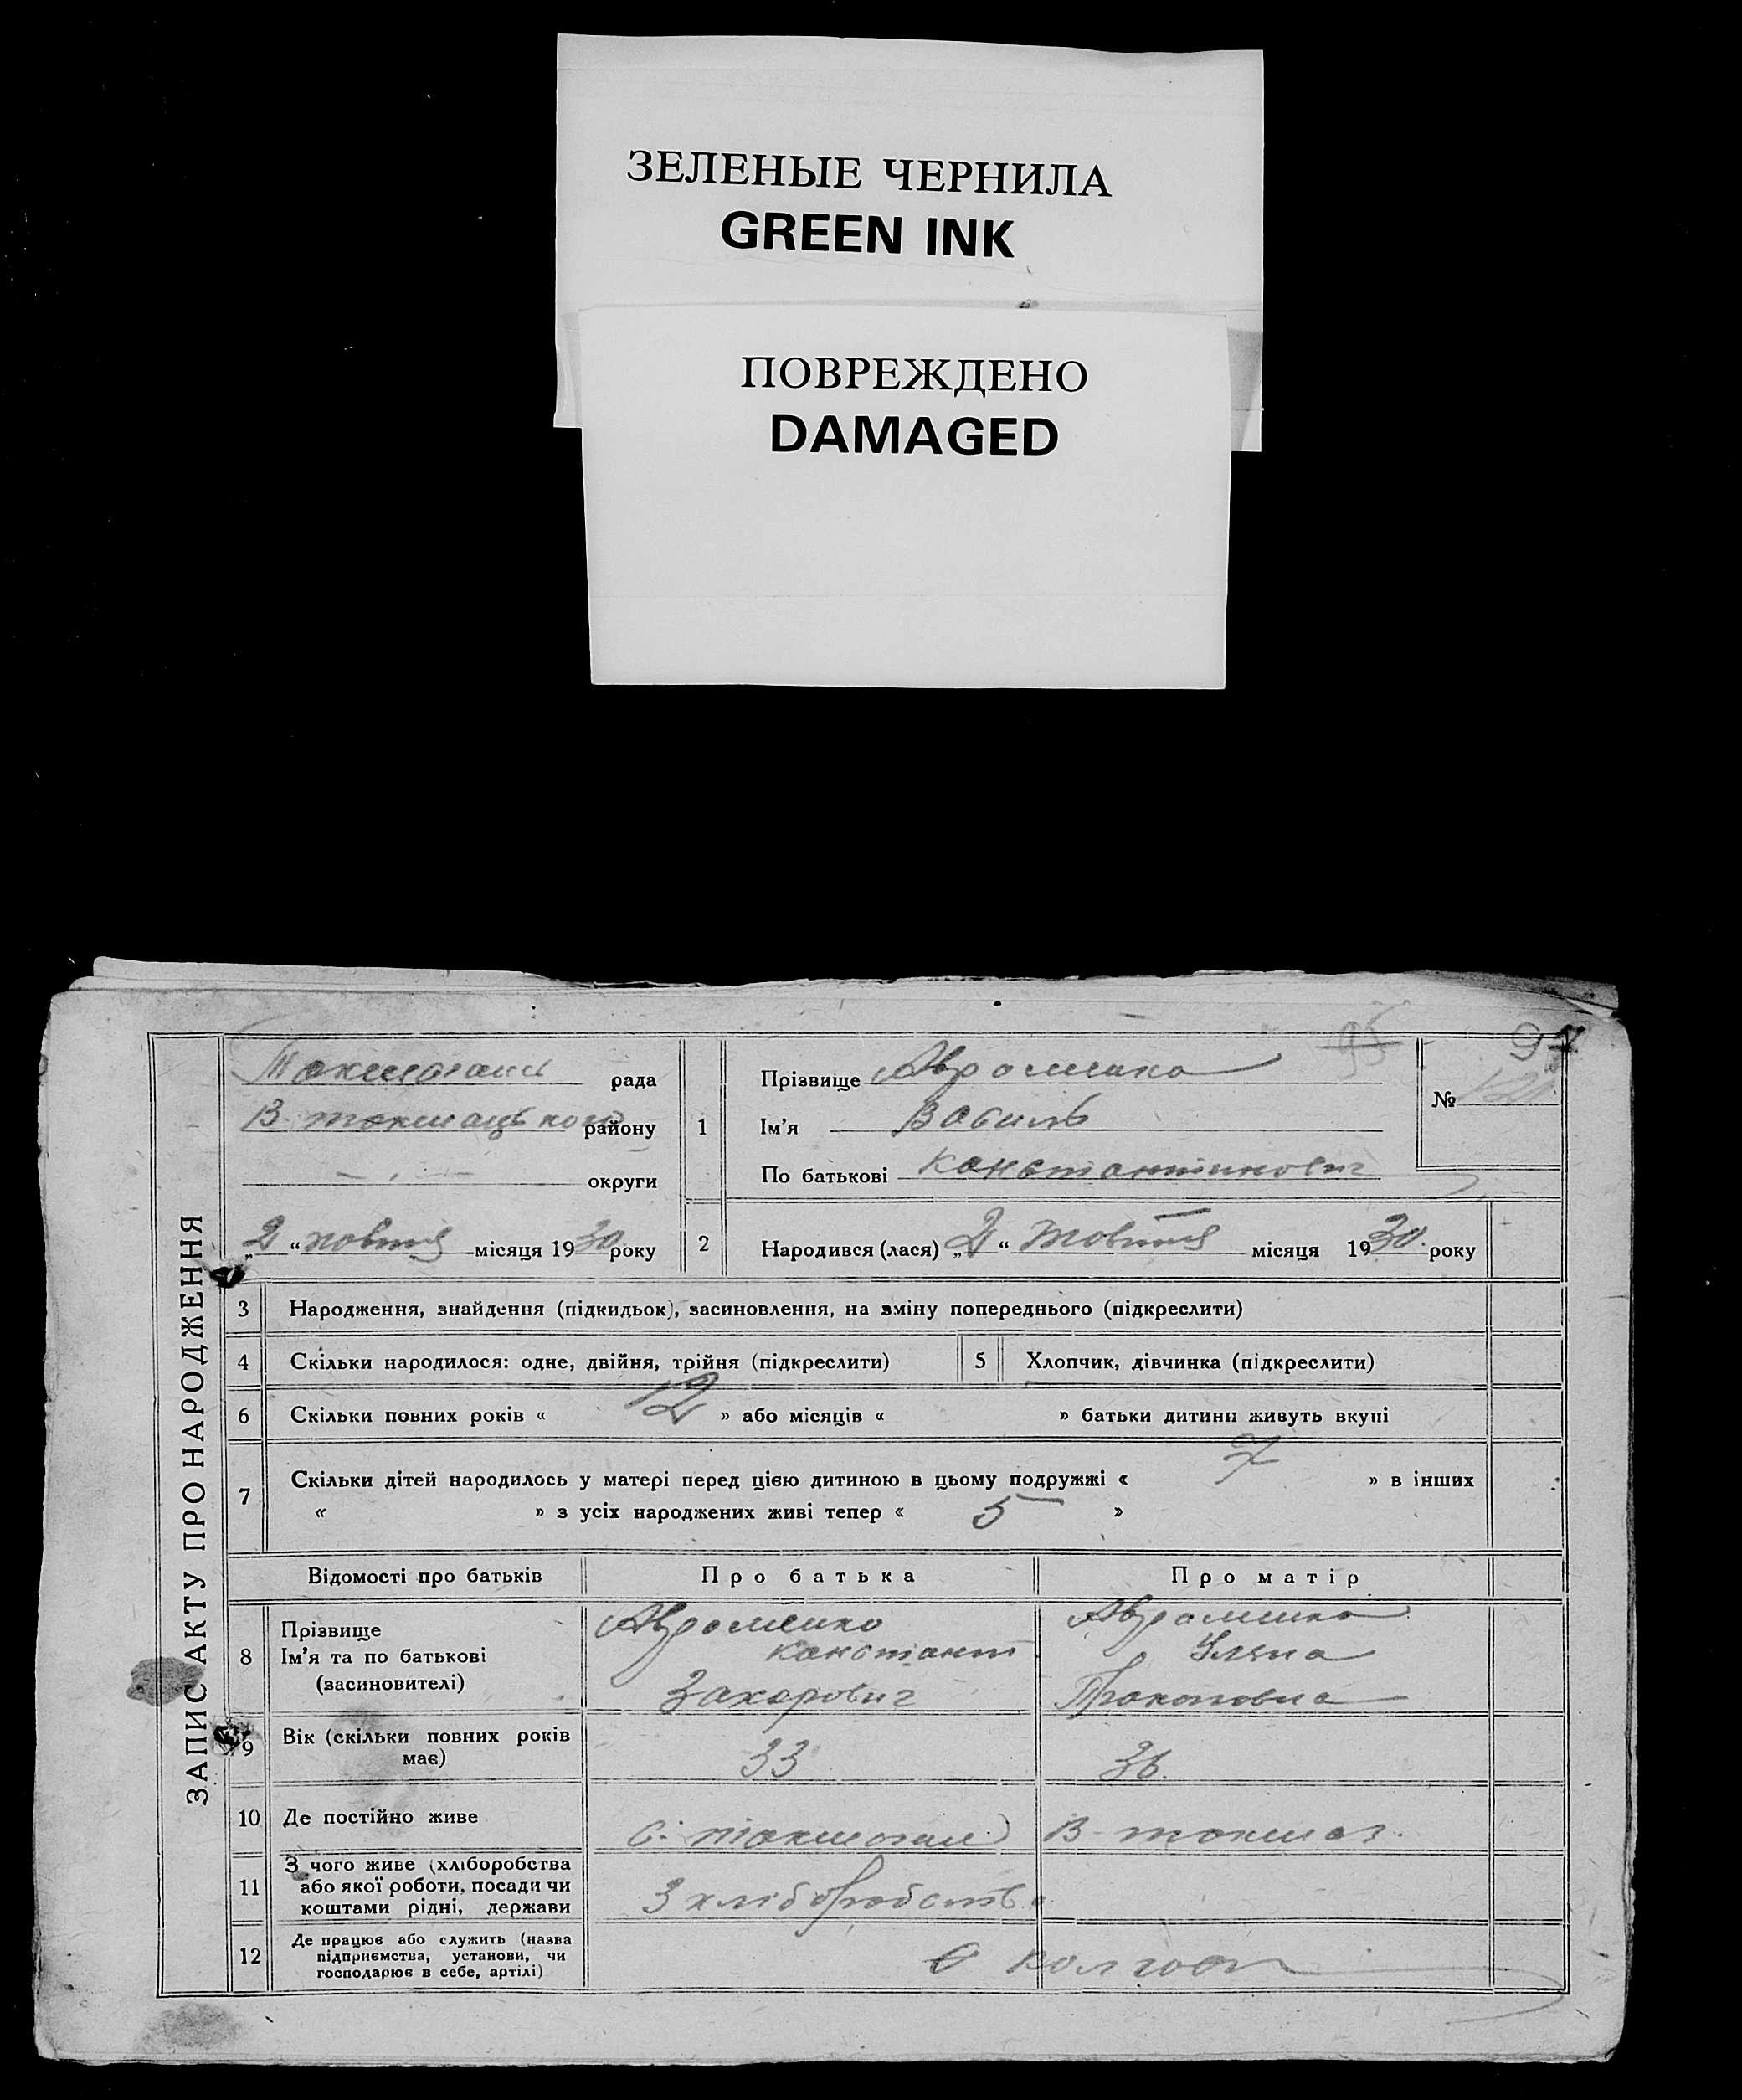 ЗЕЛЕНЫЕ ЧЕРНИЛА
GREEN INK
ПОВРЕЖДЕНО
DAMAGED
ЗАПИС АКТУ ПРО НАРОДЖЕННЯ
рада
В. токмацького району
округи
„2“ жовтня місяця 1930 року
95 97
№
1 Прізвище Авраменко
Ім'я Василь
По батькові Константинович
2 Народився (лася) „2“ Жовтня місяця 1930. року
3 Народження, знайдення (підкидьок), засиновлення, на зміну попереднього (підкреслити)
4 Скільки народилося: одне, двійня, трійня (підкреслити) 5 Хлопчик, дівчинка (підкреслити)
6 Скільки повних років « 12 » або місяців « » батьки дитини живуть вкупі
7 Скільки дітей народилось у матері перед цією дитиною в цьому подружжі « 7 » в інших
« » з усіх народжених живі тепер « 5 »
Відомості про батьків Про батька Про матір
8 Прізвище Ім'я та по батькові (засиновителі)
Авраменко Констант Захарович
Авраменко Уляна Прокоповна
9 Вік (скільки повних років має) 33 36.
10 Де постійно живе В-токмак.
11 З чого живе (хліборобства або якої роботи, посади чи коштами рідні, держави З хліборобства
12 Де працює або служить (назва підприємства, установи, чи господарює в себе, артілі)